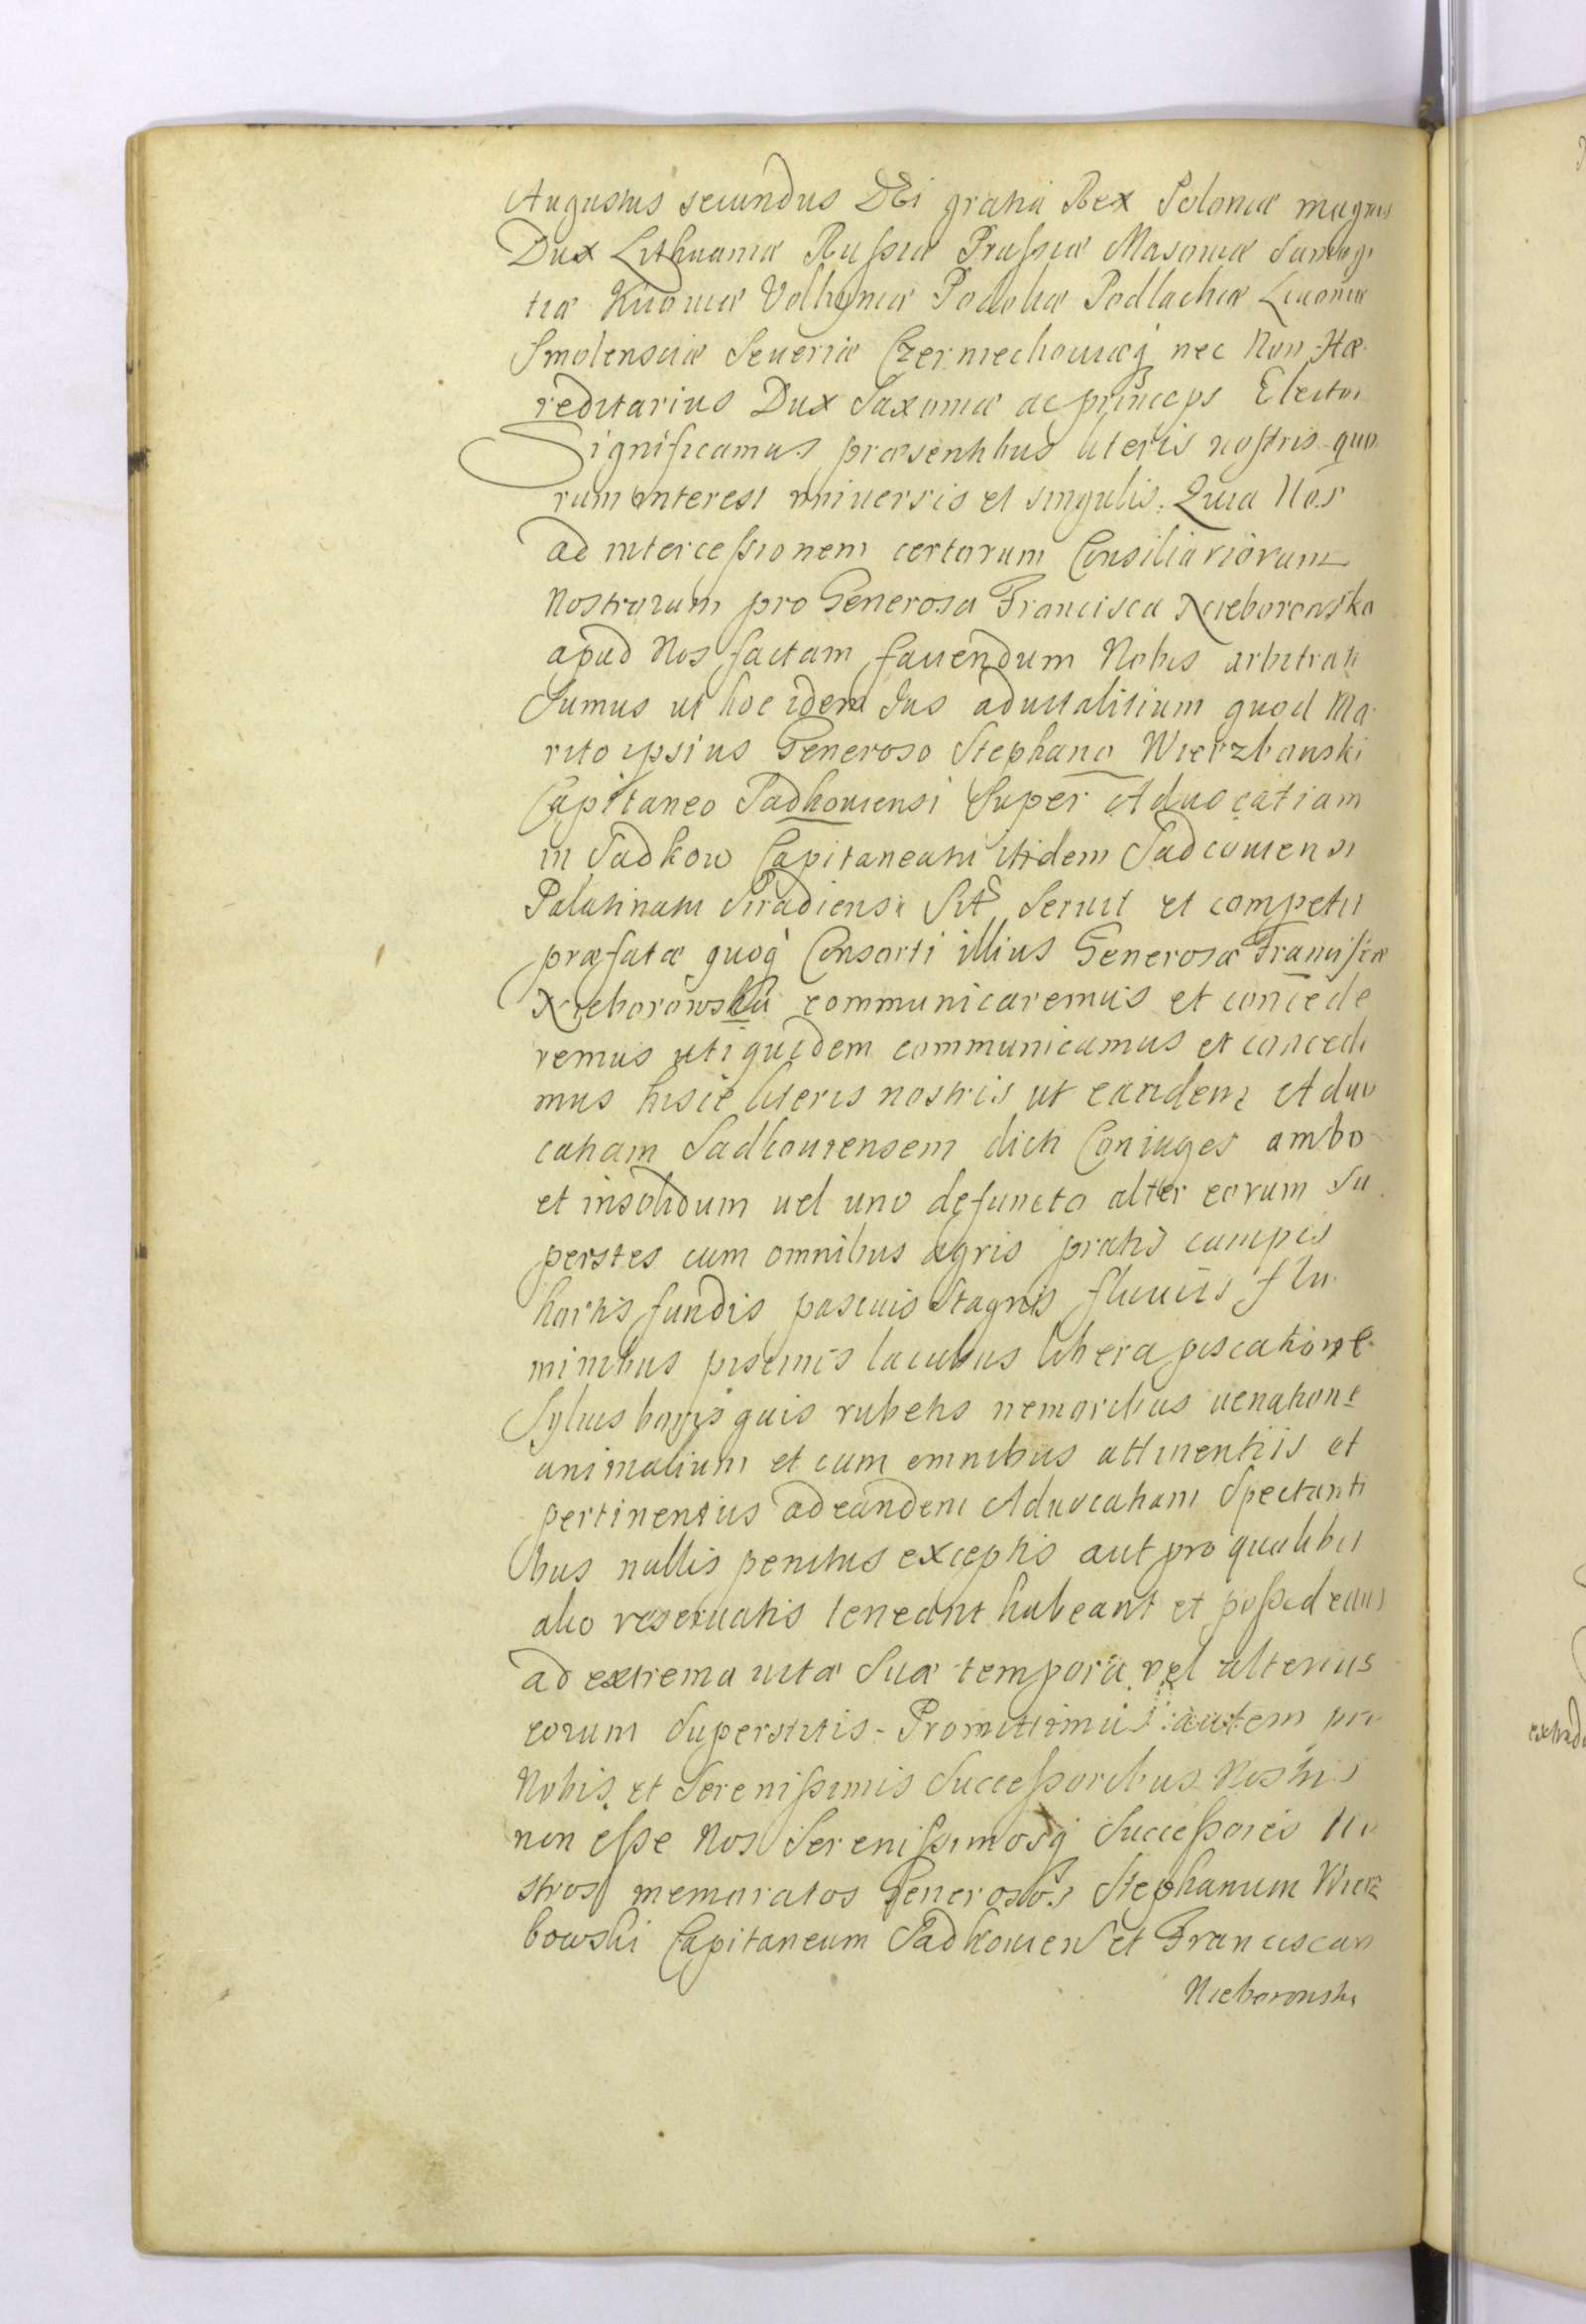 Augustus secundus DEi gratia Rex Poloniæ magnus
Dux Lithuaniæ Russiæ Prussiæ Masoviæ Samogi
tiæ Kiioviæ Volhyniæ Podoliæ Podlachiæ Livoniæ
Smolensciæ Severiæ Czerniechoviæq nec Non Hæ
reditarius Dux Saxoniæ ac princeps Elector
Significamus præsentibus literis nostris quo
rum interest universis et singulis. Quia Nos
ad intercessionem certorum Consiliariorum
Nostrorum pro Generosa Francisca Nieborowska
apud Nos factam favendum Nobis arbitrati
Sumus ut hoc idem Jus advitalitium quod Ma
rito ipsius Generoso Stephano Wierzbowski
Capitaneo Sadkoviensi Super Advocatiam
in Sadkow Capitaneatu itidem Sadcoviensi
Palatinatu Siradiensi Sit. Servit et competit
præfatæ quoq Consorti illius Generosæ Franciscæ
Nieborowska communicaremus et concede
remus uti quidem communicamus et concedi
mus hisce literis nostris ut eandem Advo
catiam Sadkoviensem dicti Coniuges ambo
et insolidum vel uno defuncto alter eorum Su
perstes cum omnibus agris pratis campis
hortis fundis pascuis Stagnis fluviis flu
minibus piscinis lacubus libera piscatione
Sylvis borris quis rubetis nemoribus venatione
animalium et cum omnibus attinentiis et
pertinentiis ad eandem Advocatiam Spectanti
bus nullis penitus exceptis aut pro qualibet
alio reservatis teneant habeant et possideant
ad extrema vitæ Suæ tempora vel alterius
eorum Superstitis - Promittimus autem pro
Nobis et Serenissimis Successoribus Nostris
non esse Nos Serenissimosq Successores No
stros memoratos Generosos Stephanum Wierz
bowski Capitaneum Sadkowien et Franciscam
Nieborowska